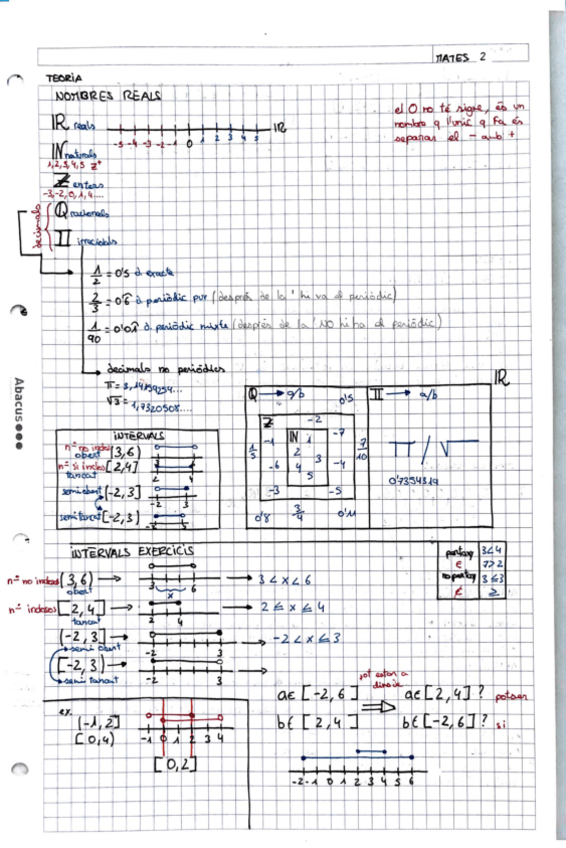 MATES 2
TEORIA
NOMBRES REALS
el 0 no té signe, és un
nombre q l'únic q fa és
separar el - amb +
IR reals
-5 -4 -3 -2 -1 0 1 2 3 4 5 IR
IN naturals
1,2,3,4,5 Z⁺
Z enters
-3,-2,0,1,4....
decimals
Q racionals
II irracionals
1/2 = 0'5 → exacte
2/3 = 0'6̂ → periòdic pur (després de la ' hi va el periòdic)
1/90 = 0'01̂ → periòdic mixte (després de la ' NO hi ha el periòdic)
decimals no periòdics
π = 3,14159254...
√3 = 1,7320508....
Abacus
IR
Q → a/b 0'5
II → a/b
Z -2
-1 IN 1 -7
1/5 2 3 7/10
-6 4 -4
5
-3 -5
0'8 3/4 0'11
π / √
0'7354319
INTERVALS
n= no inclòs (3,6)
obert 3 6
n= si inclòs [2,4]
tancat 2 4
semi obert (-2,3]
-2 3
semi tancat [-2,3)
-2 3
INTERVALS EXERCICIS
n= no inclosos (3,6) → 3 6 → 3 < x < 6
obert x
n= inclosos [2,4] → 2 4 → 2 ≤ x ≤ 4
tancat
(-2,3] → -2 3 → -2 < x ≤ 3
semi obert
[-2,3) → -2 3
semi tancat
pertany 3<4
∈ 7>2
no pertany 3≤3
∉ ≥
ex.
(-1,2]
[0,4)
-1 0 1 2 3 4
[0,2]
a∈ [-2,6] ⇒ a∈[2,4]? potser
b∈ [2,4] b∈[-2,6]? si
-2 -1 0 1 2 3 4 5 6